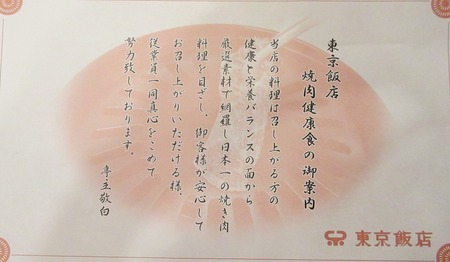 東京飯店
焼肉健康食の御案内
当店の料理は召し上がる方の
健康と栄養バランスの面から
厳選素材で網羅し日本一の焼き肉
料理を目ざし、御客様が安心して
お召し上がりいただける様、
従業員一同真心をこめて
努力致しております。
専主敬白
東京飯店